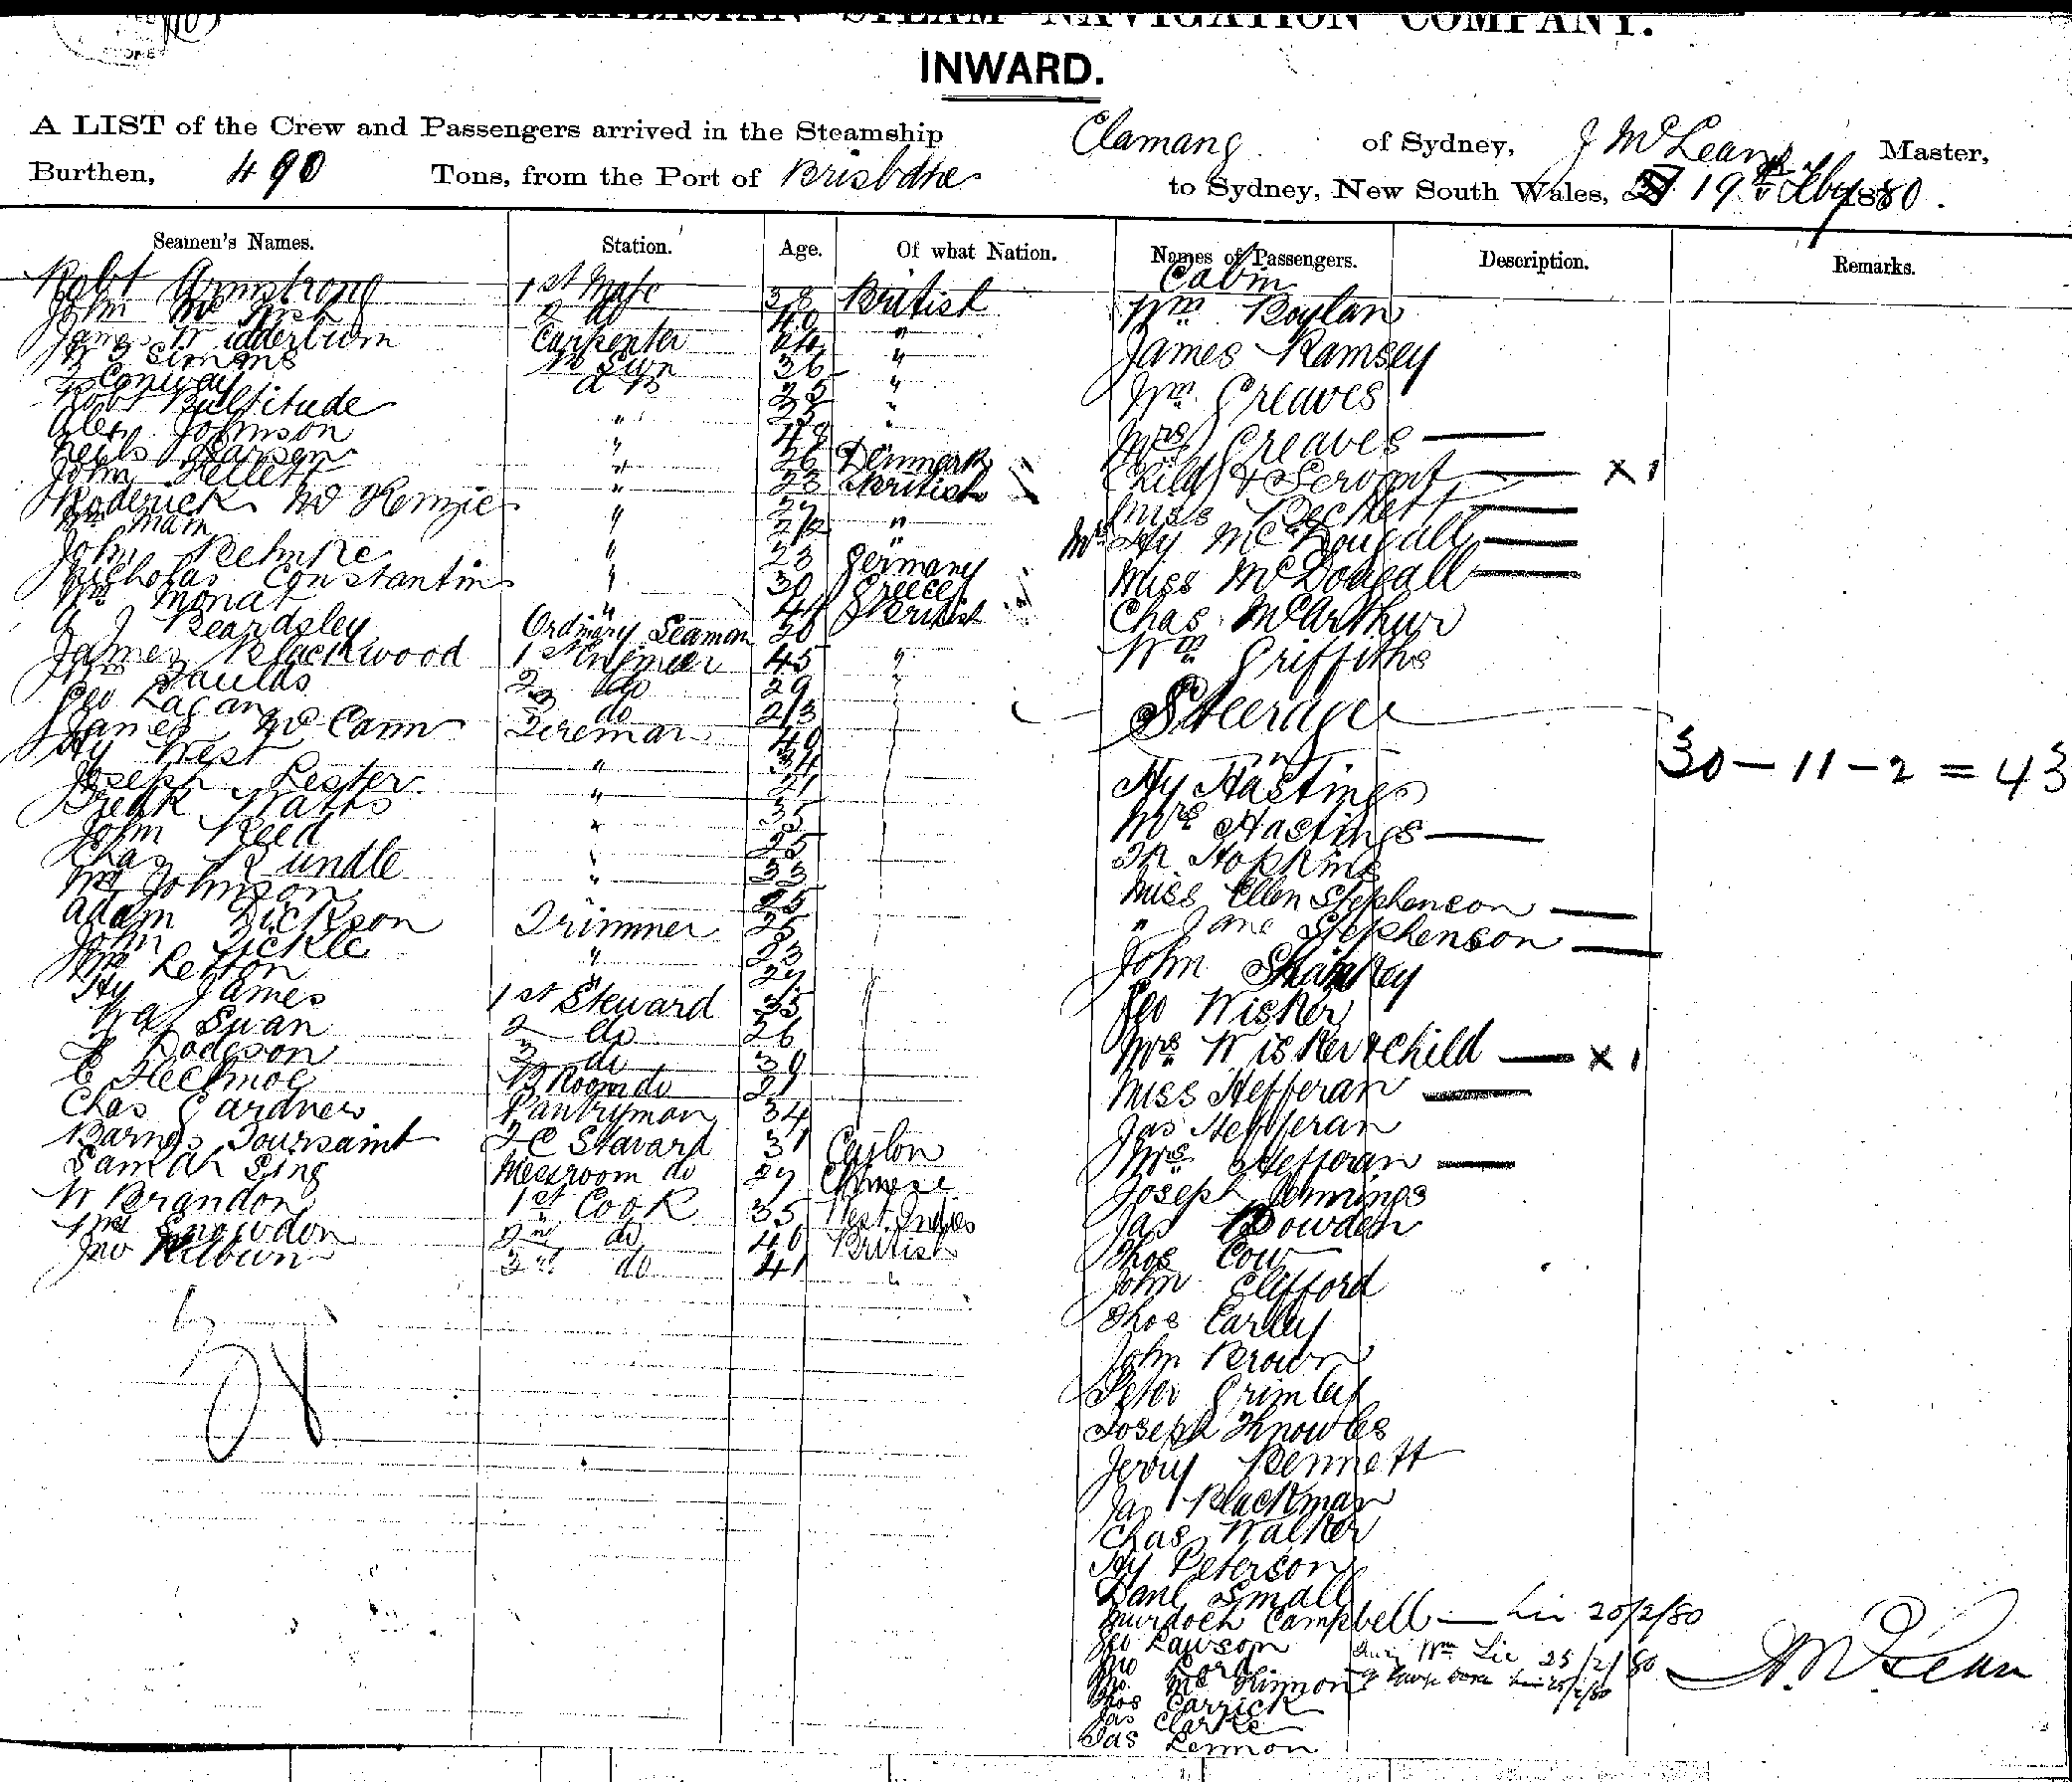 AUSTRALASIAN STEAM NAVIGATION COMPANY.
INWARD.
A LIST of the Crew and Passengers arrived in the Steamship Elamang of Sydney, J McLean Master,
Burthen, 490 Tons, from the Port of Brisbane to Sydney, New South Wales, 19th Feby 1880.
Seamen's Names. Station. Age. Of what Nation. Names of Passengers. Description. Remarks.
Robt Armstrong 1st Mate 38 British
John 2 do 40 "
James Wedderburn Carpenter 44 "
W J Simons 36 "
J Conway A B 25 "
Robt Bultitude " 25 "
Alex Johnson " 48
Neils Larsen " 26 Denmark
John Kellett " 23 British
Roderick McKenzie " 27 "
Wm Mam " 22 "
John Behnke " 23 Germany
Nicholas Constantin " 30 Greece
Wm Monat " 41 British
A J Beardsley Ordinary Seaman 20
James Blackwood 1st Engineer 45 "
Wm Faulds 2 do 29 "
Geo Lagan 3 do 23
James McCann Fireman 40
Hy West " 34
Joseph Lester " 21
Fredk Watts " 35
John Reed " 25
Chas Rundle " 33
Wm Johnson 25
Adam Dickson Trimmer 26
John Tickle " 23
Wm Lefton " 27
Hy James 1st Steward 35
Swan 2 do 26
Dodgson 3 do 39
E Flechmoe F Room do 21
Chas Gardner Pantryman 34
Barnes Toursaint F C Steward 31 Ceylon
Sam Ah Sing Messroom do 27 Chinese
W Brandon 1st Cook 35 West Indies
Wm Snowdon 2nd do 40 British
Jno Kilburn 3rd do 41 "
Cabin
Wm Boylan
James Ramsey
Wm Greaves
Mrs Greaves
Child & Servant x 1
Miss Beckett
Mrs Hy McDougall
Miss McDougall
Chas McArthur
Wm Griffiths
Steerage
30 - 11 - 2 = 43
Hy Hastings
Mrs Hastings
Th Hopkins
Miss Ellen Stephenson
" Jane Stephenson
John Sharkey
Geo Wisker
Mrs Wisker & child x 1
Miss Hefferan
Jas Hefferan
Mrs Hefferan
Joseph Jennings
Jas Bowden
Thos Cow
John Clifford
Thos Earley
John Brown
Peter Grimley
Joseph Knowles
Jerry Bennett
Jas Blackman
Chas Walker
Hy Peterson
Danl Small
Murdoch Campbell 20/2/80
Geo Lawson
Jno Lord Wm Lic 25/2/80
Jno McKinnon
Thos Carrick
Jas Clarke
Jas Lennon